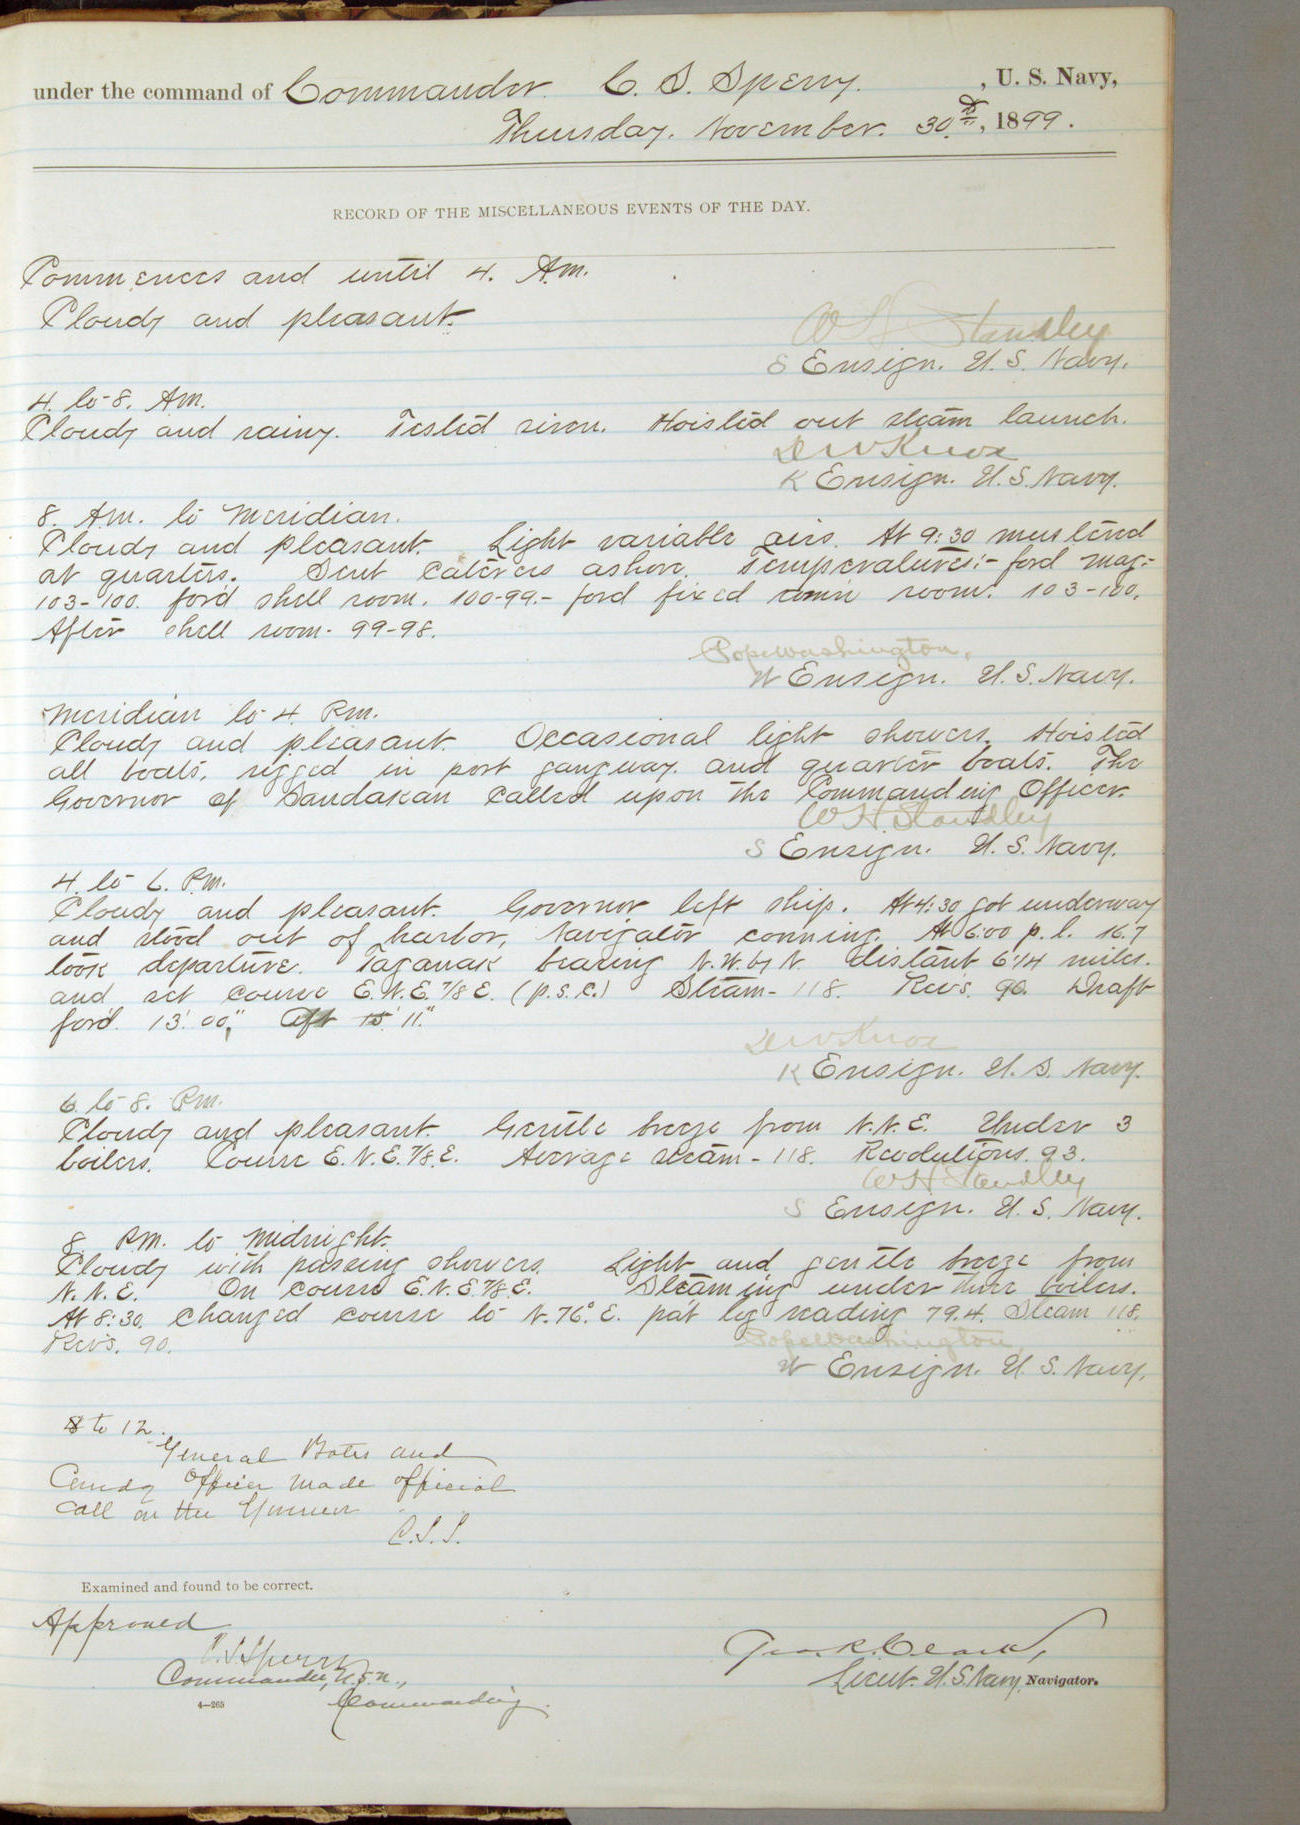 under the command of Commander. C. S. Sperry. , U. S. Navy,
Thursday. November. 30th, 1899.
RECORD OF THE MISCELLANEOUS EVENTS OF THE DAY.
Commences and until 4. A.m.
Cloudy and pleasant.
W H Standley
S Ensign. U. S. Navy.
4. to 8. A.m.
Cloudy and rainy. Tested siren. Hoisted out steam launch.
D W Knox
K Ensign. U. S. Navy.
8. A.m. to Meridian.
Cloudy and pleasant. Light variable airs. At 9:30 mustered
at quarters. Sent caterers ashore. Temperatures:- for'd mag:-
103-100. for'd shell room. 100-99.- for'd fixed room. 103-100.
After shell room. 99-98.
Pope Washington,
W Ensign. U. S. Navy.
Meridian to 4. P.m.
Cloudy and pleasant. Occasional light showers. Hoisted
all boats, rigged in port gangway. and quarter boats. The
Governor of Sandakan called upon the Commanding Officer.
W H Standley
S Ensign. U. S. Navy.
4. to 6. P.m.
Cloudy and pleasant. Governor left ship. At 4:30 got underway
and stood out of harbor, Navigator conning. At 6:00 p. l. 16.7
took departure. Taganak bearing N. W. by N. distant 6 1/4 miles.
and set course E. N. E. 7/8 E. (p. s. c.) Steam- 118. Revs. 90. Draft
for'd. 13'. 00", Aft 15' 11."
D W Knox
K Ensign. U. S. Navy.
6 to 8. P.m.
Cloudy and pleasant. Gentle breeze from N. N. E. Under 3
boilers. Course E. N. E. 7/8. E. Average steam - 118. Revolutions. 93.
W H Standley
S Ensign. U. S. Navy.
8 P.M. to Midnight.
Cloudy with passing showers. Light and gentle breeze from
N. N. E. On course E. N. E. 7/8 E. Steaming under three boilers.
At 8:30. changed course to N. 76° E. pat log reading 79.4. Steam 118.
Revs. 90.
Pope Washington,
W Ensign. U. S. Navy.
8 to 12.
General Bates and
Comdg Officer made official
call on the Governor
C. S. S.
Examined and found to be correct.
Approved
C. S. Sperry
Commander, U. S. N.,
Commanding.
4—265
Geo. R. Clark,
Lieut. U. S. Navy, Navigator.